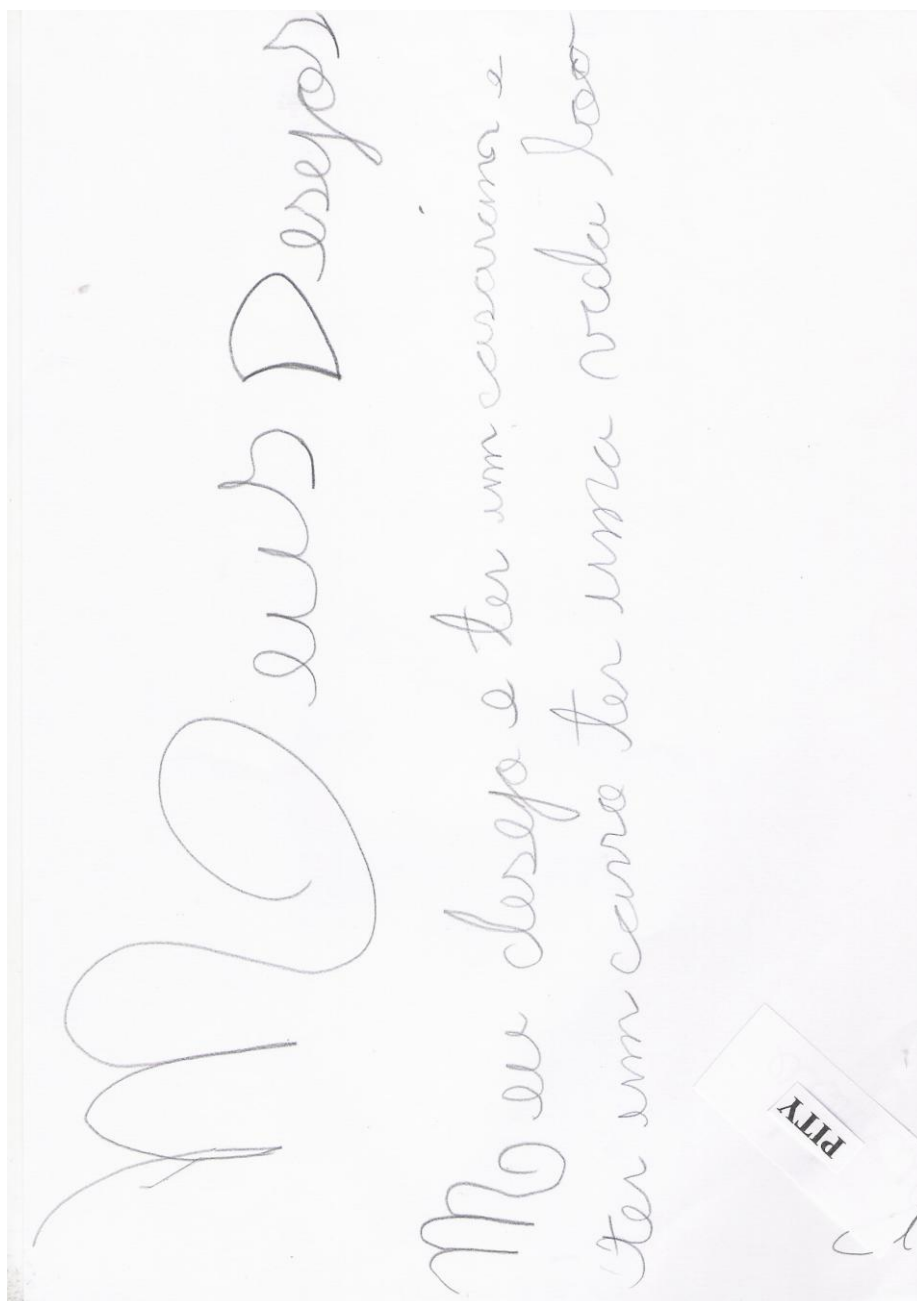 Meus Desejos
Meu desejo e ter um casarama e
ter um carro ter uma vida boo
PITY